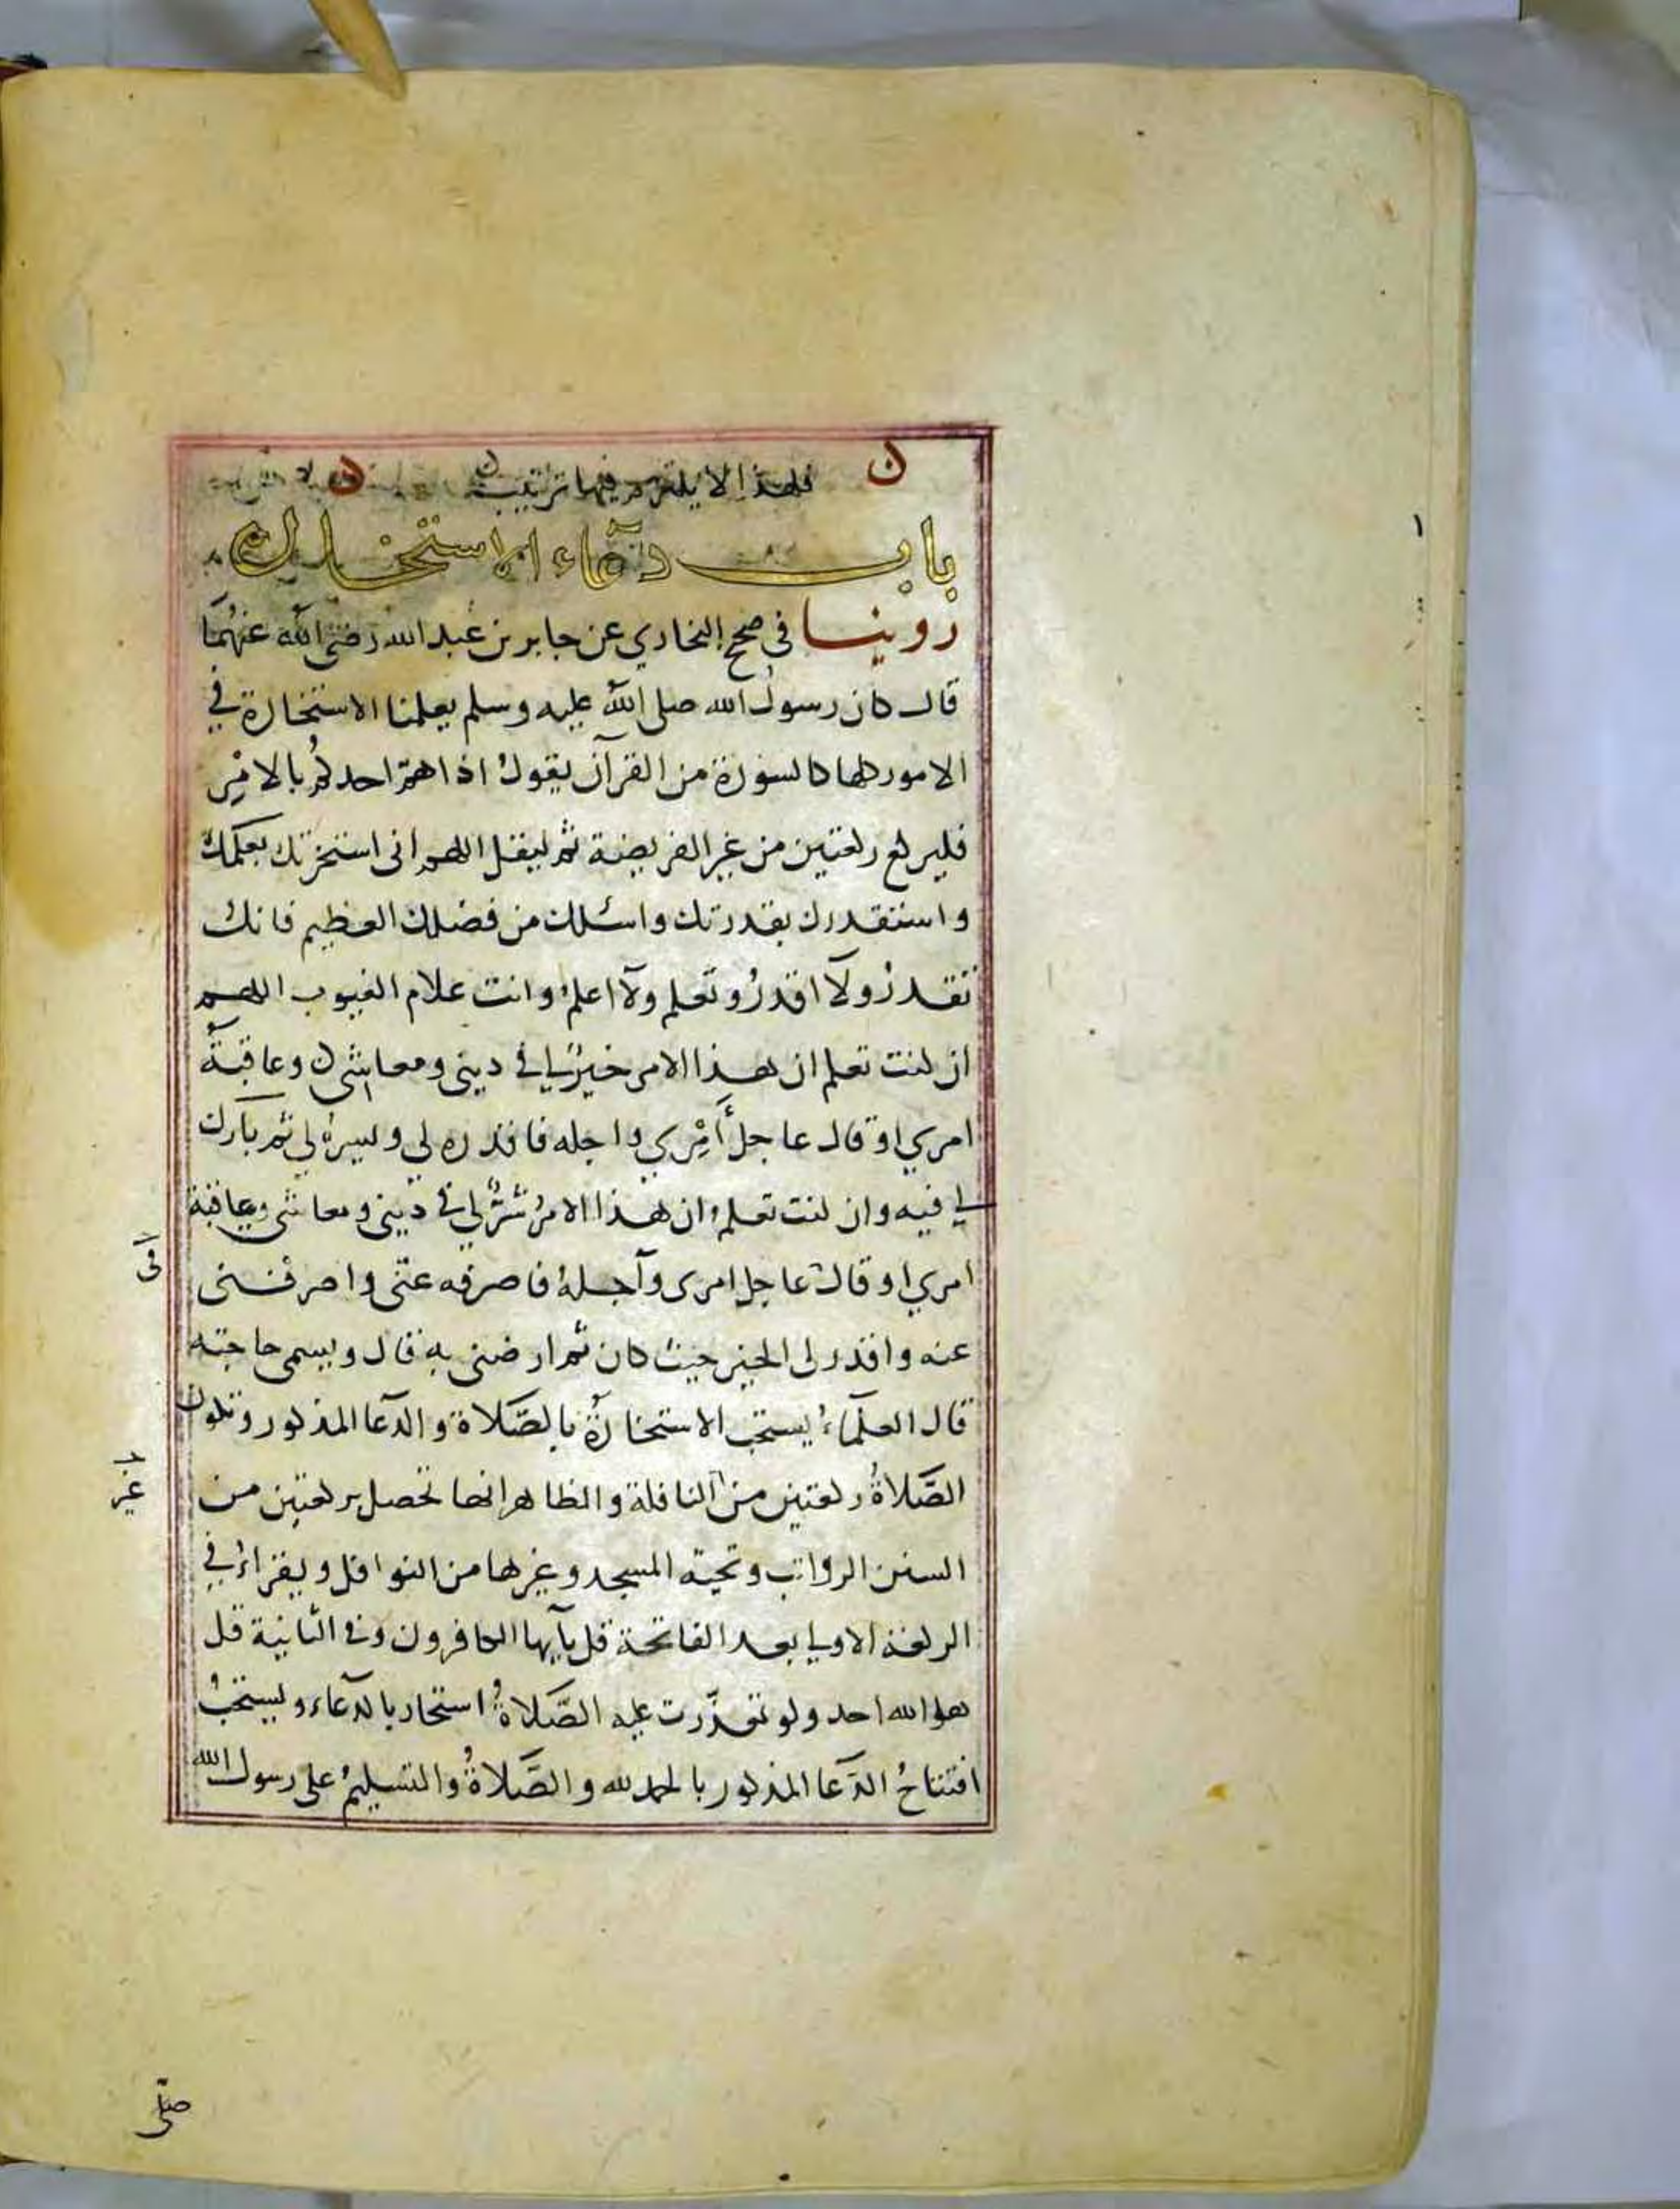 فلهذا لا يلتزم فيها ترتيب
باب دعاء الاستخارة
روينا فى صحيح البخاري عن جابر بن عبد الله رضى الله عنهما
قال كان رسول الله صلى الله عليه وسلم يعلمنا الاستخارة في
الامور كلها كالسورة من القرآن يقول اذا هم احدكم بالامر
فليركع ركعتين من غير الفريضة ثم ليقل اللهم انى استخيرك بعلمك
واستقدرك بقدرتك واسئلك من فضلك العظيم فانك
تقدر ولا اقدر وتعلم ولا اعلم وانت علام الغيوب اللهم
ان كنت تعلم ان هذا الامر خير لي في دينى ومعاشى وعاقبة
امري او قال عاجل أمري واجله فاقدره لي ويسره لي ثم بارك
لي فيه وان كنت تعلم ان هذا الامر شر لي في دينى ومعاشى وعاقبة
امري او قال عاجل امرى وآجله فاصرفه عنى واصرفنى
عنه واقدر لى الخير حيث كان ثم ارضنى به قال ويسمى حاجته
قال العلماء يستحب الاستخارة بالصلاة والدعا المذكور وتكون
الصلاة ركعتين من النافلة والظاهر انها تحصل بركعتين من
السنن الرواتب وتحية المسجد وغيرها من النوافل ويقراء في
الركعة الاولى بعد الفاتحة قل يآيها الكافرون وفى الثانية قل
هو الله احد ولو تعذرت عليه الصلاة استخار بالدعاء ويستحب
افتتاح الدعا المذكور بالحمد لله والصلاة والتسليم على رسول الله
صلى